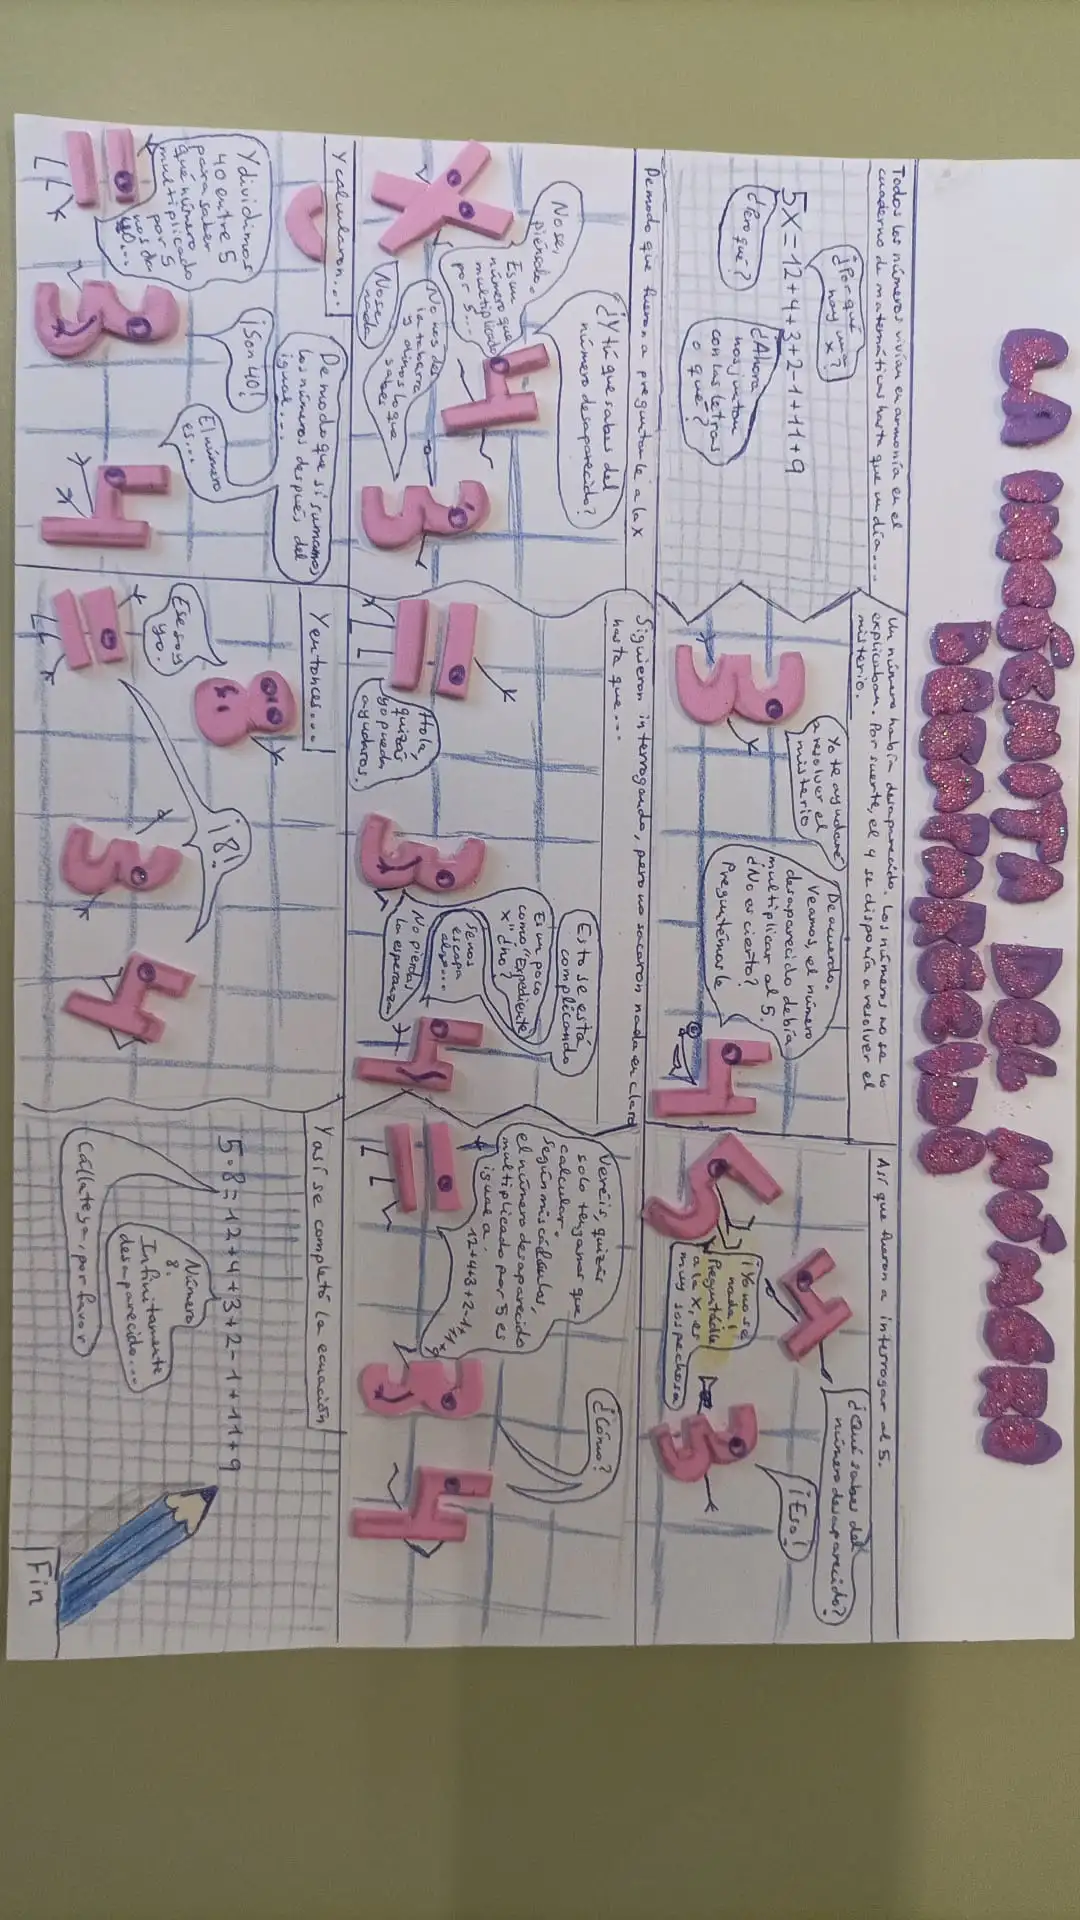 LA INCÓGNITA DEL NÚMERO
DESAPARECIDO
Todos los números vivían en armonía en el
cuaderno de matemáticas hasta que un día...
¿Por qué
hay una
x?
5x=12+4+3+2-1+11+9
¿Pero qué?
¿Ahora
nos juntan
con las letras
o qué?
Un número había desaparecido. Los números no se lo
explicaban. Por suerte, el 4 se disponía a resolver el
misterio.
Yo te ayudaré
a resolver el
misterio
De acuerdo.
Veamos, el número
desaparecido debía
multiplicar al 5.
¿No es cierto?
Preguntémosle
Así que fueron a interrogar al 5.
¿Qué sabes del
número desaparecido?
¡Eso!
¡Yo no se
nada!
Preguntádle
a la X, es
muy sospechosa
De modo que fueron a preguntarle a la X
¿Y tú que sabes del
número desaparecido?
No se,
piénsalo.
Es un
número que
multiplicado
por 5...
No nos des
la tabarra
y dinos lo que
sabes
No se
nada
Siguieron interrogando, pero no sacaron nada en claro
hasta que...
Hola,
quizás
yo pueda
ayudaros.
Esto se está
complicando
Es un poco
como "Expediente
X" ¿no?
Se nos
escapa
algo...
No pierdas
la esperanza
Veréis, quizás
solo tengamos que
calcular.
Según mis cálculos,
el número desaparecido
multiplicado por 5 es
igual a
12+4+3+2-1+11+9
¿Cómo?
Y calcularon...
De modo que si sumamos
los números después del
igual...
¡Son 40!
El número
es...
Y dividimos
40 entre 5
para saber
que número
multiplicado
por 5
nos da
40...
Y entonces...
Ese soy
yo.
¡8!
Y así se completó la ecuación
5·8=12+4+3+2-1+11+9
Número
8.
Infinitamente
desaparecido...
Cállate ya, por favor
Fin